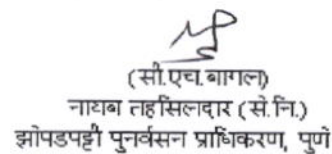 (सी.एच.बागल)
नायब तहसिलदार (से.नि.)
झोपडपट्टी पुनर्वसन प्राधिकरण, पुणे